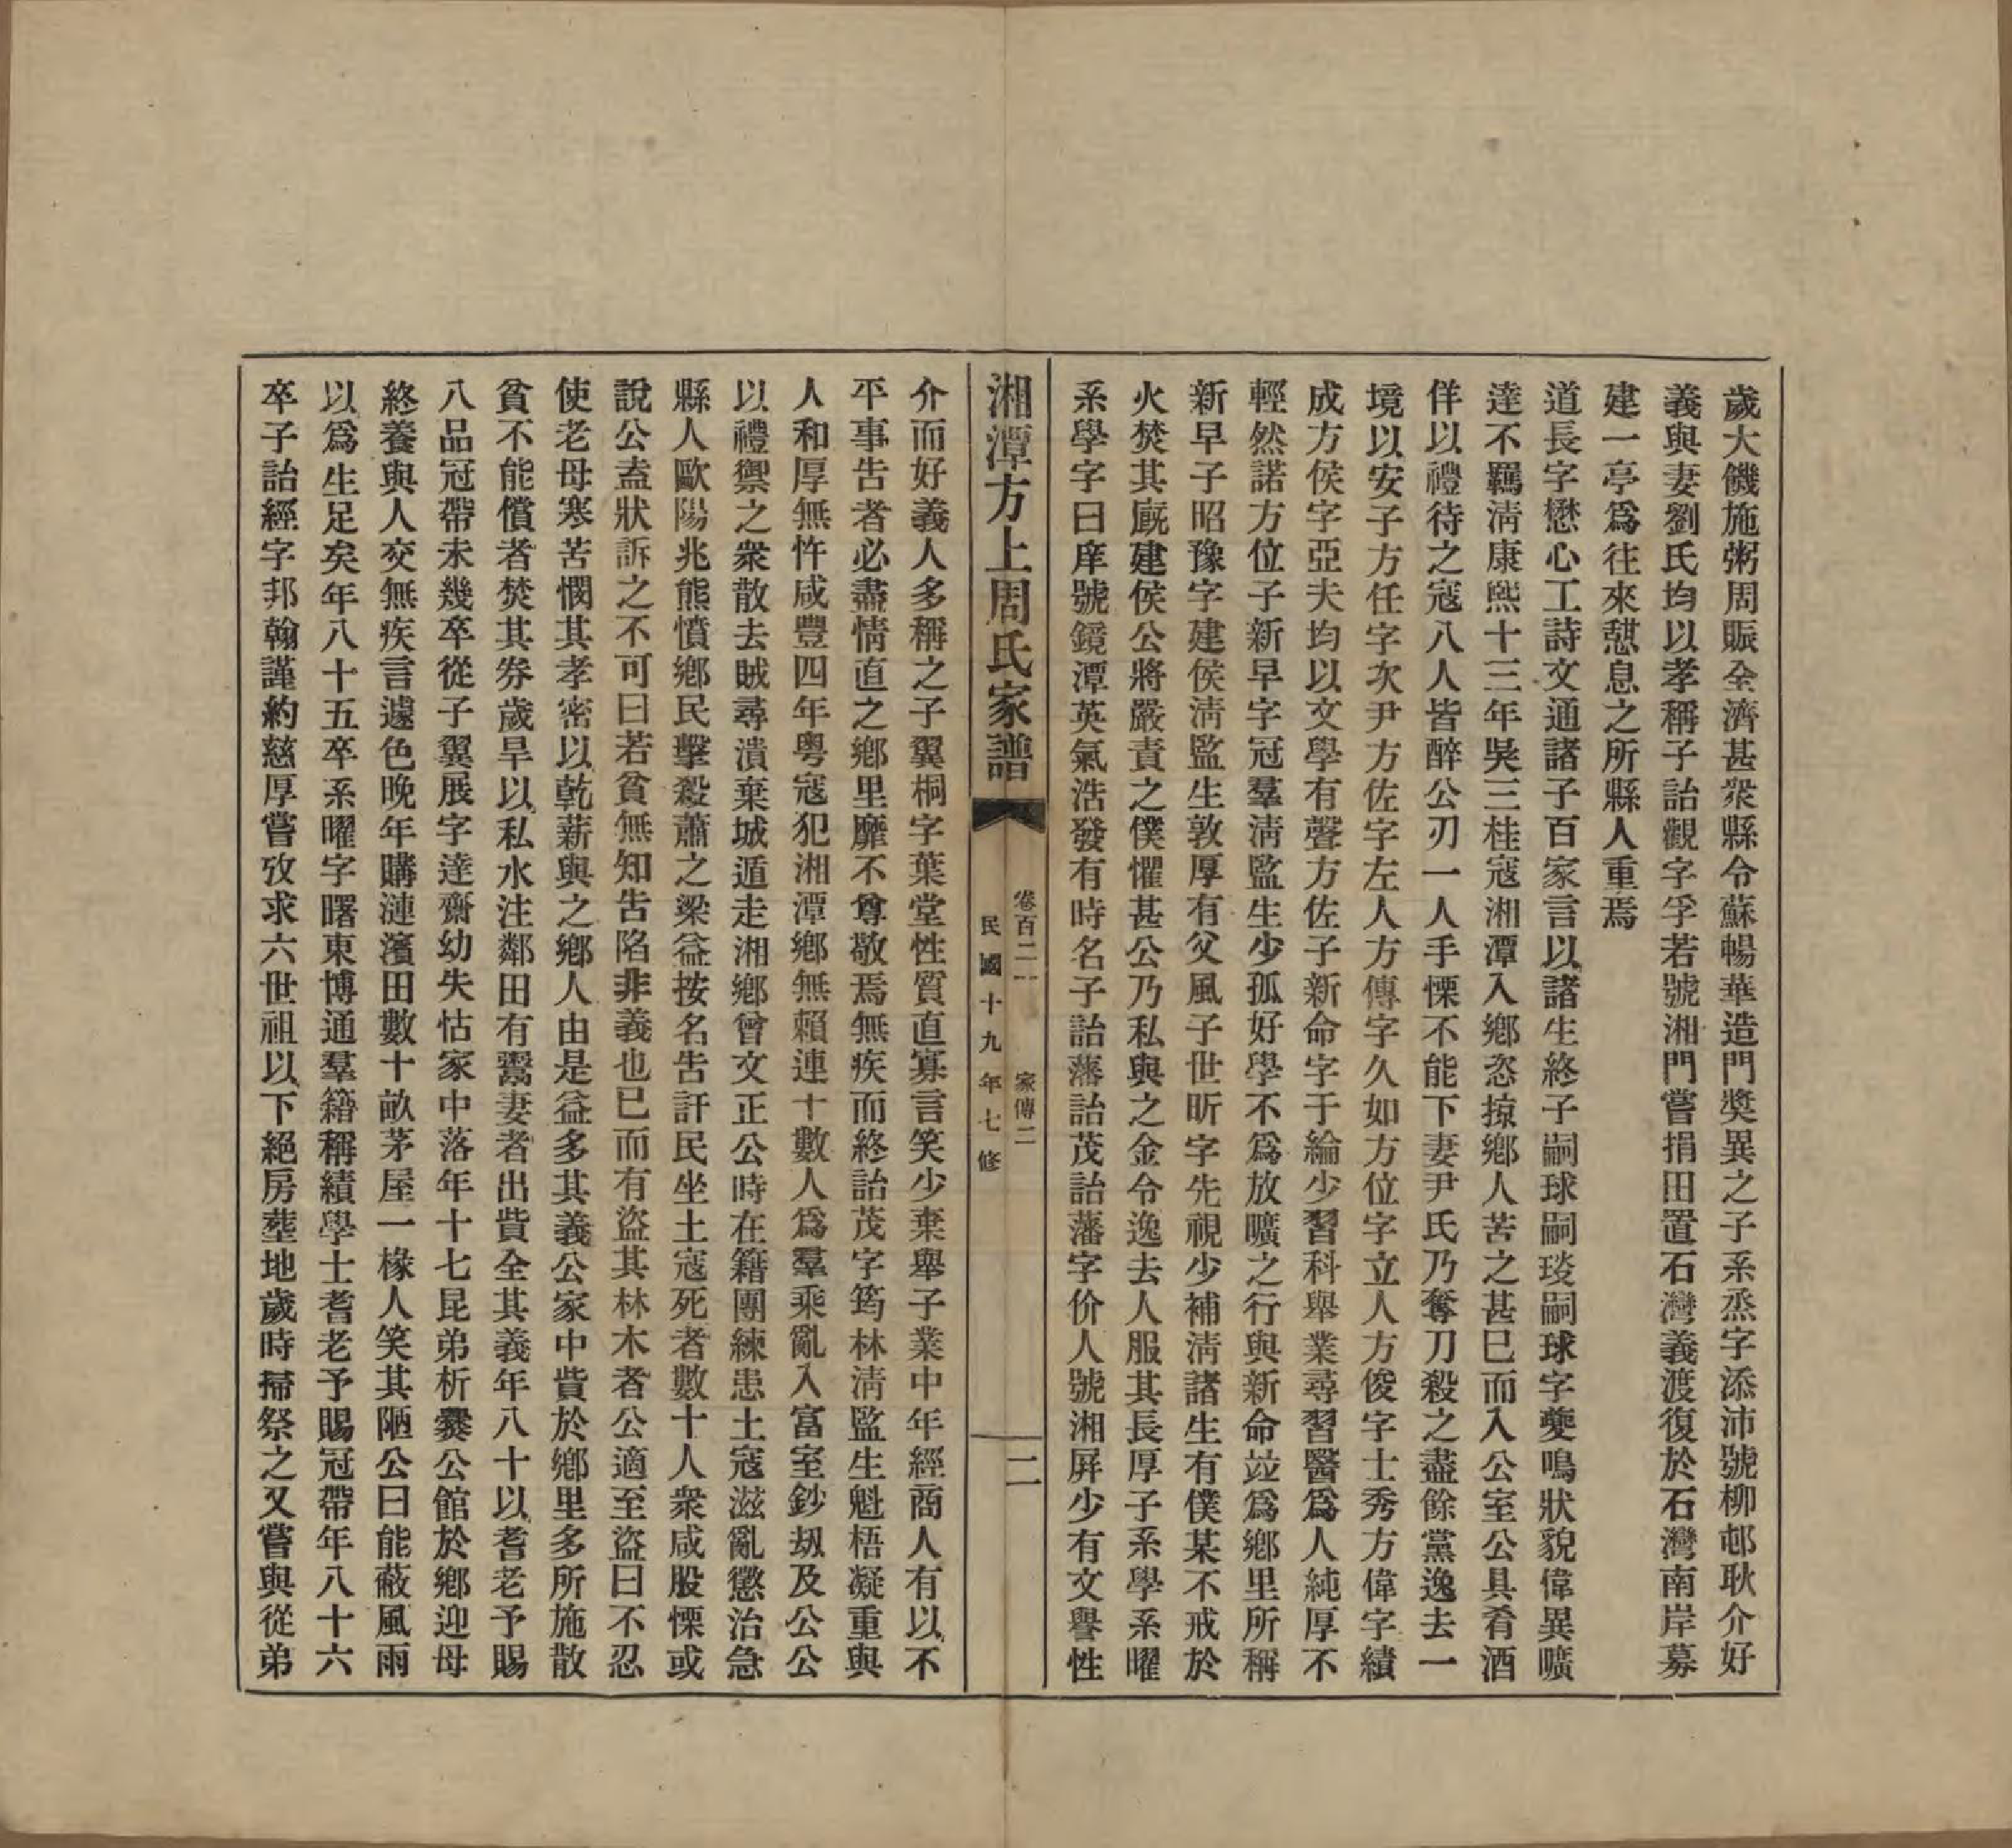 歲大饑施粥周賑全濟甚衆縣令蘇暢華造門奬異之子系烝字添沛號柳邨耿介好
義與妻劉氏均以孝稱子詒觀字孚若號湘門嘗捐田置石灣義渡復於石灣南岸募
建一亭爲往來憇息之所縣人重焉
道長字懋心工詩文通諸子百家言以諸生終子嗣球嗣琰嗣球字夔鳴狀貌偉異曠
達不羈淸康熙十三年吳三桂寇湘潭入鄉恣掠鄉人苦之甚已而入公室公具肴酒
佯以禮待之寇八人皆醉公刃一人手慄不能下妻尹氏乃奪刀殺之盡餘黨逸去一
境以安子方任字次尹方佐字左人方傳字久如方位字立人方俊字士秀方偉字績
成方侯字亞夫均以文學有聲方佐子新命字于綸少習科舉業尋習醫爲人純厚不
輕然諾方位子新早字冠羣淸監生少孤好學不爲放曠之行與新命竝爲鄉里所稱
新早子昭豫字建侯淸監生敦厚有父風子世昕字先視少補淸諸生有僕某不戒於
火焚其廐建侯公將嚴責之僕懼甚公乃私與之金令逸去人服其長厚子系學系曜
系學字日庠號鏡潭英氣浩發有時名子詒藩詒茂詒藩字价人號湘屏少有文譽性
湘潭方上周氏家譜
卷百二一
家傳二
民國十九年七修
二
介而好義人多稱之子翼桐字葉堂性質直寡言笑少棄舉子業中年經商人有以不
平事告者必盡情直之鄉里靡不尊敬焉無疾而終詒茂字筠林淸監生魁梧凝重與
人和厚無忤咸豐四年粤寇犯湘潭鄉無賴連十數人爲羣乘亂入富室鈔刼及公公
以禮禦之衆散去賊尋潰棄城遁走湘鄉曾文正公時在籍團練患土寇滋亂懲治急
縣人歐陽兆熊憤鄉民擊殺蕭之梁益按名吿訐民坐土寇死者數十人衆咸股慄或
說公盍狀訴之不可曰若貧無知吿陷非義也已而有盜其林木者公適至盜曰不忍
使老母寒苦憫其孝密以乾薪與之鄉人由是益多其義公家中貲於鄉里多所施散
貧不能償者焚其券歲旱以私水注鄰田有鬻妻者出貲全其義年八十以耆老予賜
八品冠帶未幾卒從子翼展字達齋幼失怙家中落年十七昆弟析爨公館於鄉迎母
終養與人交無疾言遽色晚年購漣濱田數十畝茅屋一椽人笑其陋公曰能蔽風雨
以爲生足矣年八十五卒系曜字曙東博通羣籍稱績學士耆老予賜冠帶年八十六
卒子詒經字邦翰謹約慈厚嘗攷求六世祖以下絕房塋地歲時掃祭之又嘗與從弟